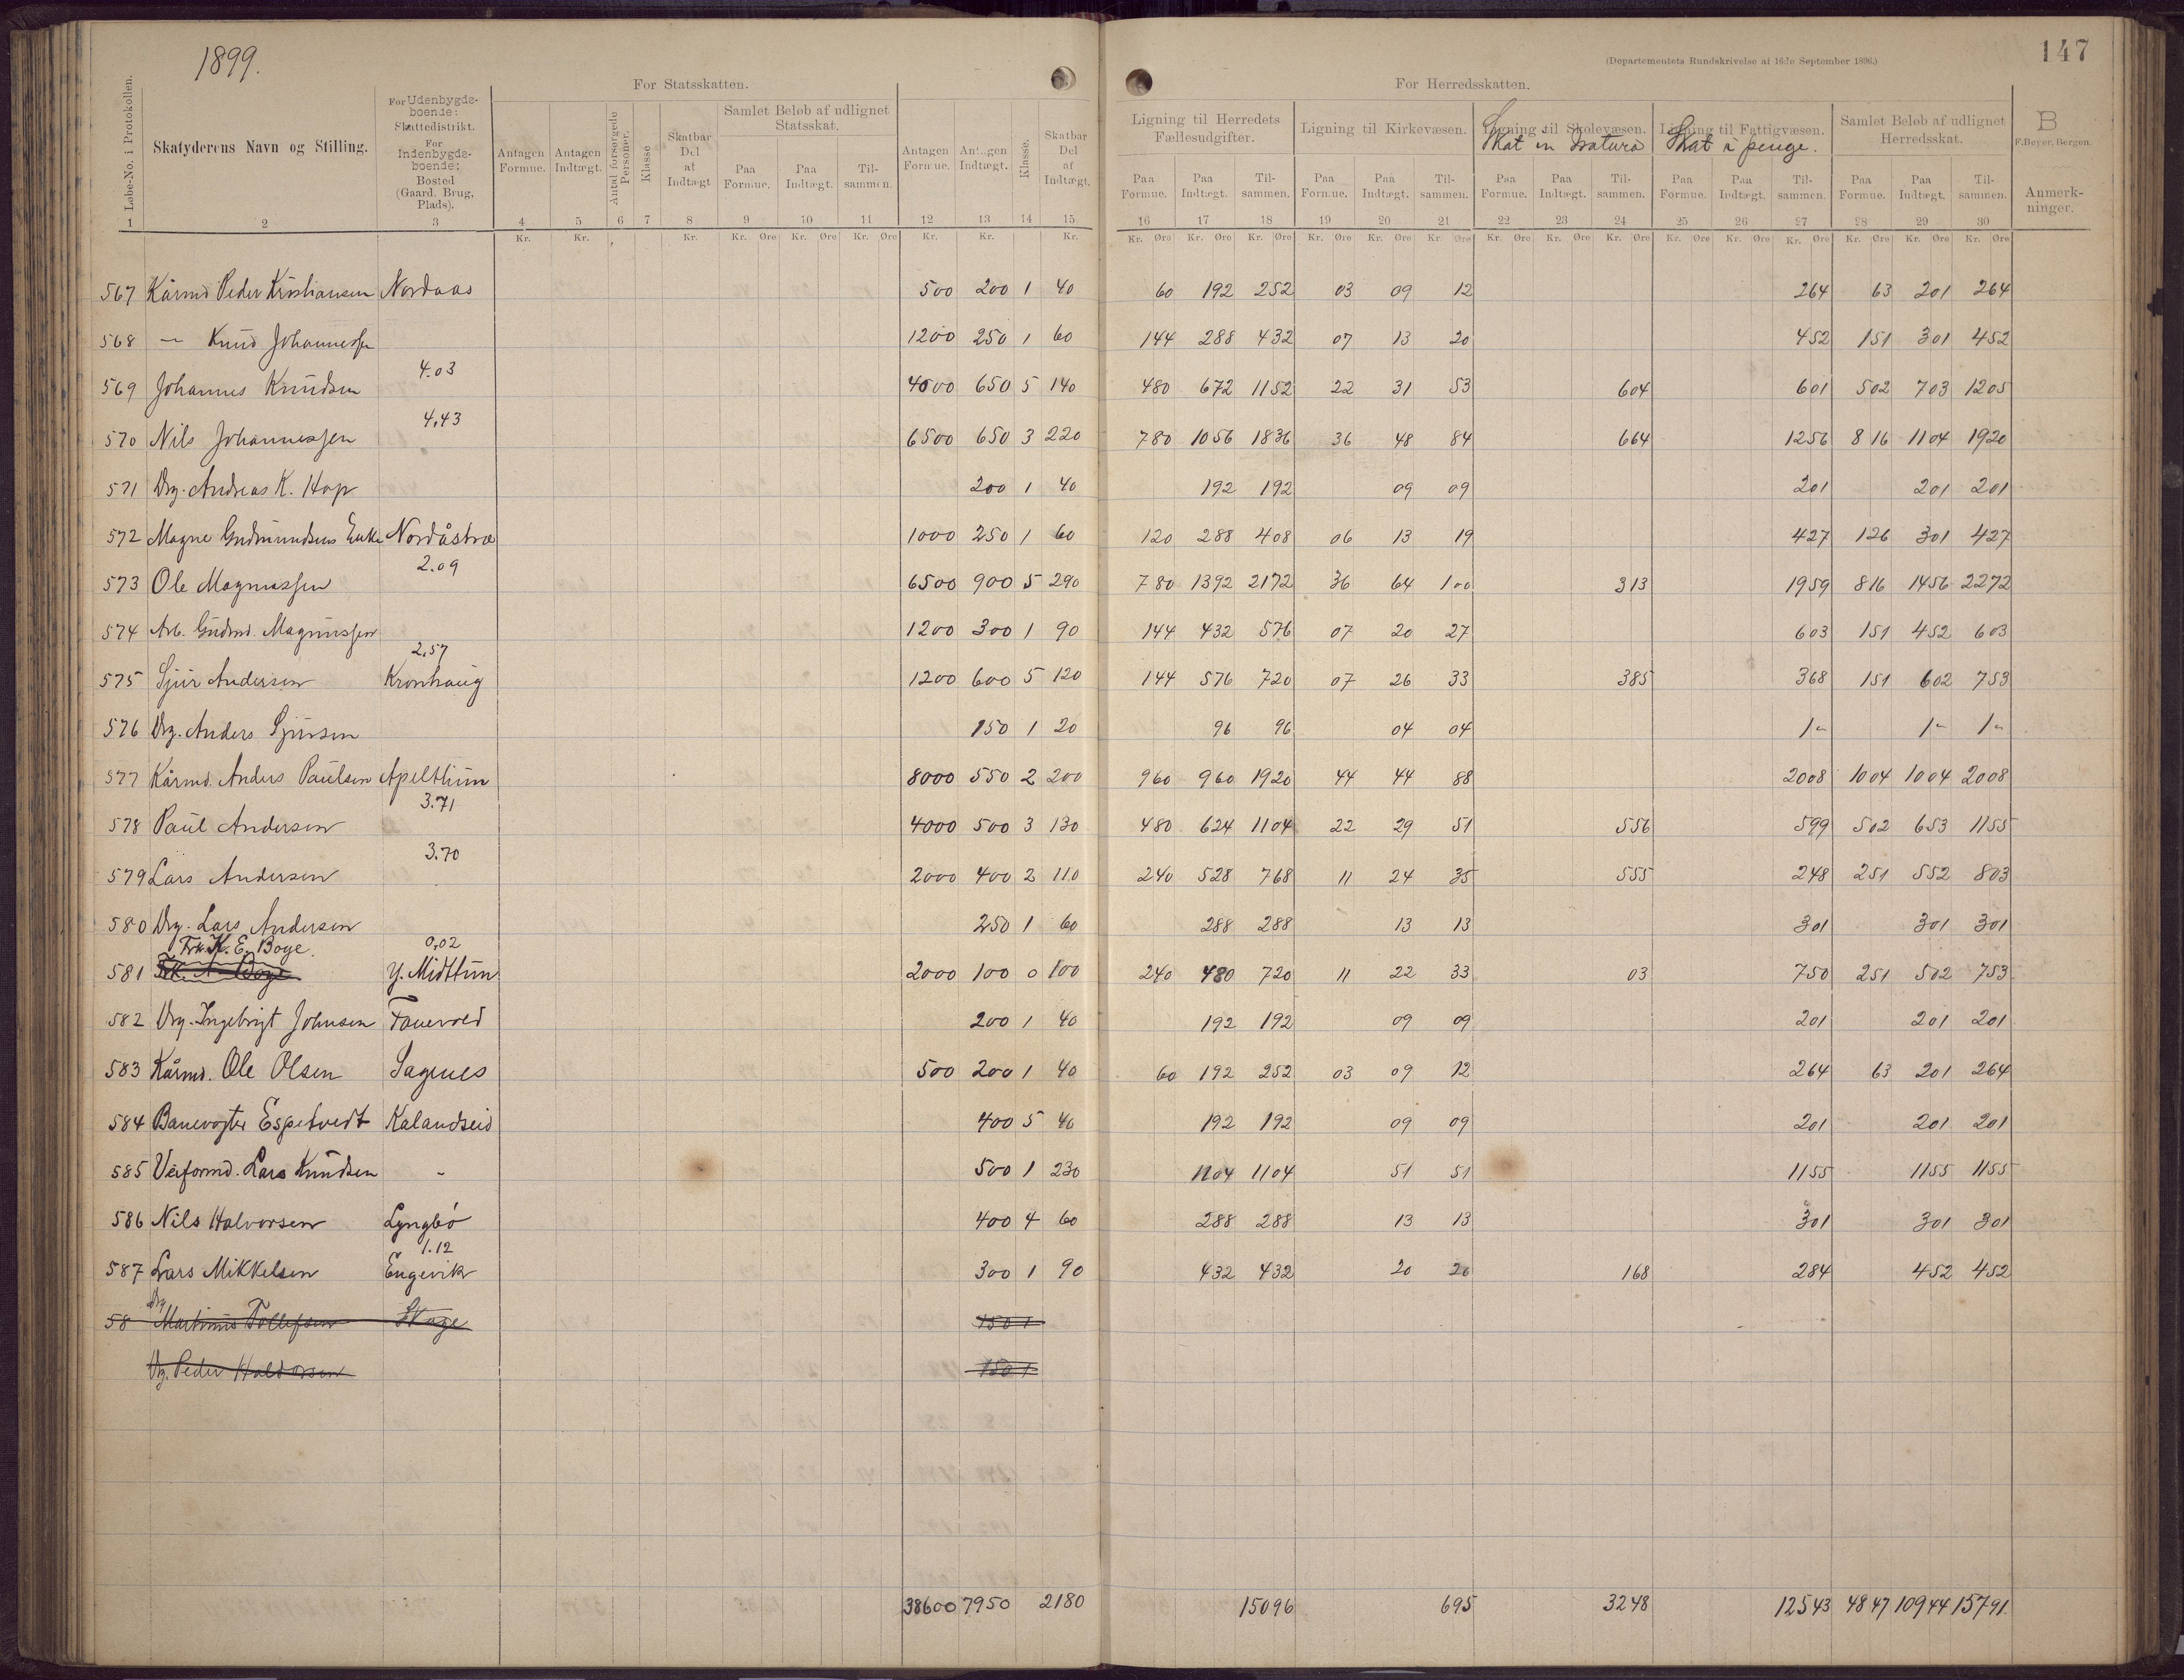 1899.
147
(Departementets Rundskrivelse af 16de September 1896.)
For Statsskatten.
For Herredsskatten.
Løbe-No. i Protokollen.
Skatyderens Navn og Stilling.
For Udenbygds-boende: Skattedistrikt. For Indenbygds-boende: Bosted (Gaard, Brug, Plads).
Antagen Formue.
Antagen Indtægt.
Antal forsørgede Personer.
Klasse
Skatbar Del af Indtægt
Samlet Beløb af udlignet Statsskat.
Paa Formue. Paa Indtægt. Til-sammen.
Antagen Formue.
Antagen Indtægt.
Klasse.
Skatbar Del af Indtægt.
Ligning til Herredets Fællesudgifter.
Paa Formue. Paa Indtægt. Til-sammen.
Ligning til Kirkevæsen.
Paa Formue. Paa Indtægt. Til-sammen.
Ligning til Skolevæsen.
Skat in Natura
Paa Formue. Paa Indtægt. Til-sammen.
Ligning til Fattigvæsen.
Skat i penge.
Paa Formue. Paa Indtægt. Til-sammen.
Samlet Beløb af udlignet Herredsskat.
Paa Formue. Paa Indtægt. Til-sammen.
B
F. Beyer, Bergen.
Anmerk-ninger.
1 2 3 4 5 6 7 8 9 10 11 12 13 14 15 16 17 18 19 20 21 22 23 24 25 26 27 28 29 30
Kr. Kr. Kr. Kr. Øre Kr. Øre Kr. Øre Kr. Kr. Kr. Kr. Øre Kr. Øre Kr. Øre Kr. Øre Kr. Øre Kr. Øre Kr. Øre Kr. Øre Kr. Øre Kr. Øre Kr. Øre Kr. Øre Kr. Øre Kr. Øre Kr. Øre
567 Kårmd Peder Kristiansen Nordaas 500 200 1 40 60 192 252 03 09 12 264 63 201 264
568 - Knud Johannessen 1200 250 1 60 144 288 432 07 13 20 452 151 301 452
4.03
569 Johannes Knudsen 4000 650 5 140 480 672 1152 22 31 53 604 601 502 703 1205
4,43
570 Nils Johannessen 6500 650 3 220 780 1056 1836 36 48 84 664 1256 816 1104 1920
571 Drg. Andreas K. Hop 200 1 40 192 192 09 09 201 201 201
572 Magne Gudmundsens Enke Nordåstræ 1000 250 1 60 120 288 408 06 13 19 427 126 301 427
2.09
573 Ole Magnussen 6500 900 5 290 780 1392 2172 36 64 100 313 1959 816 1456 2272
574 Arb. Gudmd. Magnussen 1200 300 1 90 144 432 576 07 20 27 603 151 452 603
2,57
575 Sjur Andersen Kronhaug 1200 600 5 120 144 576 720 07 26 33 385 368 151 602 753
576 Drg. Anders Sjursen 150 1 20 96 96 04 04 1- 1- 1-
577 Kårmd. Anders Paulsen Apelthun 8000 550 2 200 960 960 1920 44 44 88 2008 1004 1004 2008
3.71
578 Paul Andersen 4000 500 3 130 480 624 1104 22 29 51 556 599 502 653 1155
3.70
579 Lars Andersen 2000 400 2 110 240 528 768 11 24 35 555 248 251 552 803
580 Drg. Lars Andersen 250 1 60 288 288 13 13 301 301 301
Frk. K. E. Boye. 0,02
581 Frk. A Boye Y. Midttun 2000 100 0 100 240 480 720 11 22 33 03 750 251 502 753
582 Drg. Ingebrigt Johnsen Fanevold 200 1 40 192 192 09 09 201 201 201
583 Kårmd. Ole Olsen Sagnes 500 200 1 40 60 192 252 03 09 12 264 63 201 264
584 Banevogter Espetvedt Kalandseid 400 5 40 192 192 09 09 201 201 201
585 Veiformd. Lars Knudsen - 500 1 230 1104 1104 51 51 1155 1155 1155
586 Nils Halvorsen Lyngbø 400 4 60 288 288 13 13 301 301 301
1.12
587 Lars Mikkelsen Engevik 300 1 90 432 432 20 20 168 284 452 452
58 Drg Martinus Tollefsen Skage 150 1
Drg. Peder Haldorsen 150 1
38600 7950 2180 15096 695 3248 12543 4847 10944 15791.